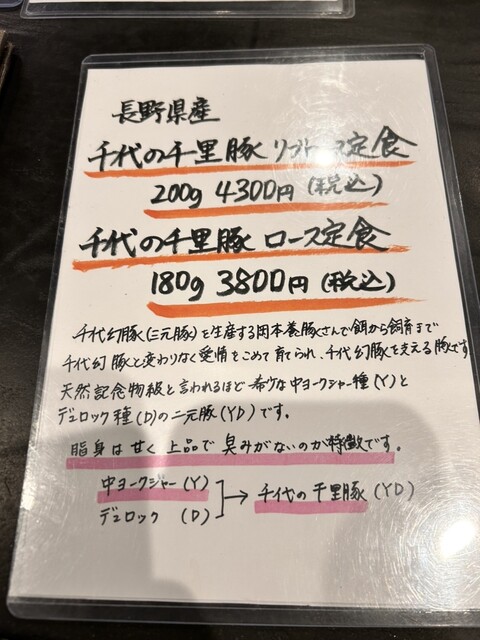 長野県産
千代の千里豚 リブロース定食
200g 4300円 (税込)
千代の千里豚 ロース定食
180g 3800円 (税込)
千代幻豚(三元豚)を生産する岡本養豚さんで餌から飼育まで
千代幻豚と変わりなく愛情をこめて育てられ、千代幻豚を支える豚です
天然記念物級と言われるほど希少な中ヨークシャー種(Y)と
デュロック種(D)の二元豚(YD)です。
脂身は甘く上品で臭みがないのが特徴です。
中ヨークシャー(Y)
デュロック (D)
→ 千代の千里豚(YD)